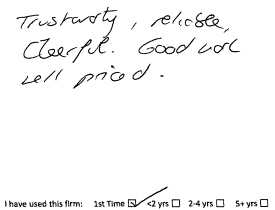 Trustworthy, reliable,
Cheerful. Good work
well priced.
I have used this firm: 1st Time ☑ <2 yrs ☐ 2-4 yrs ☐ 5+ yrs ☐